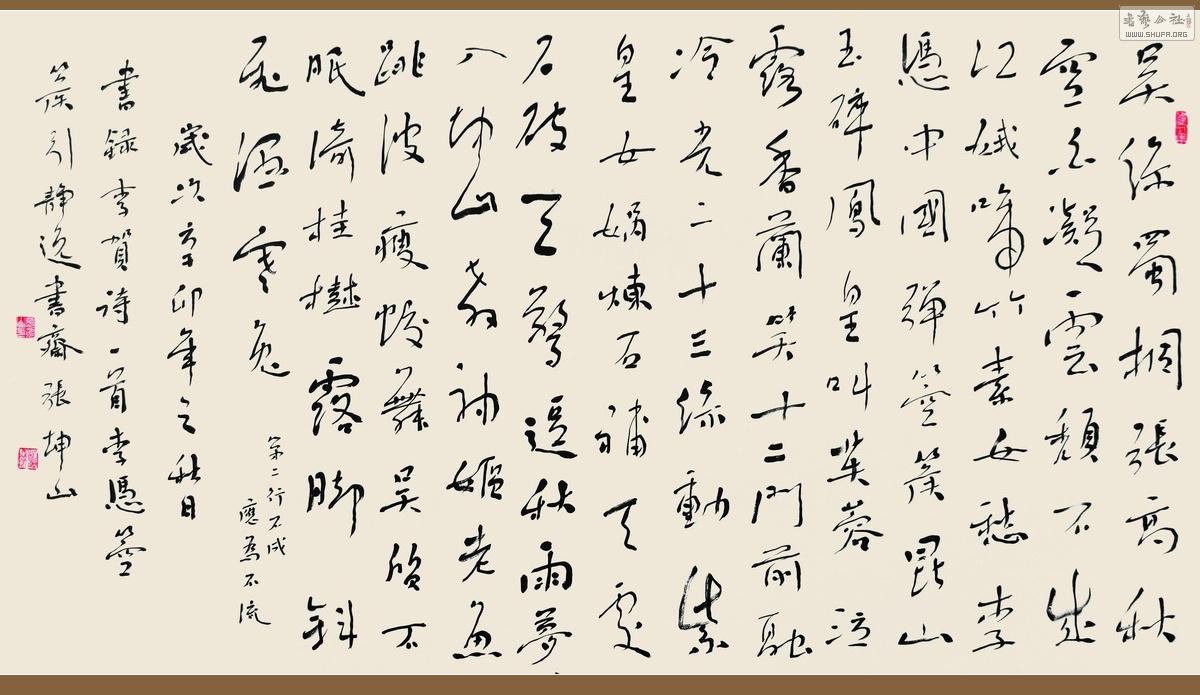 吴絲蜀桐張高秋
空白凝雲頹不成
江娥啼竹素女愁李
憑中國彈箜篌崑山
玉碎鳳皇叫芙蓉泣
露香蘭笑十二門前融
冷光二十三絲動紫
皇女媧煉石補天處
石破天驚逗秋雨夢
入坤山教神嫗老魚
跳波瘦蛟舞吴質不
眠倚桂樹露腳斜
飛濕寒兔
第二行不成
應爲不流
歲次辛卯年之秋日
書録李賀詩一首李憑箜
篌引靜逸書齋張坤山
書藝公社
WWW.SHUFA.ORG